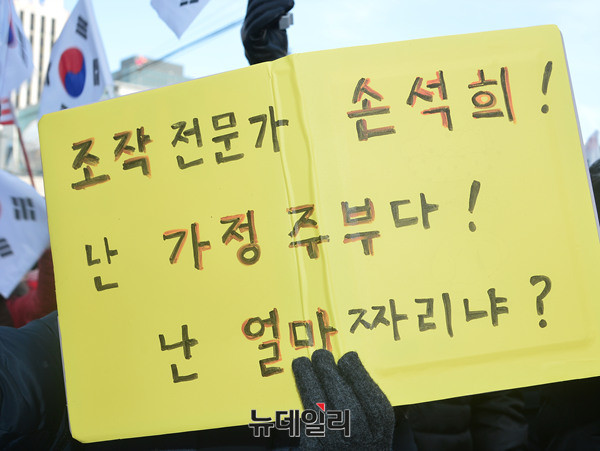 조작 전문가 손석희!
난 가정주부다!
난 얼마짜리냐?
뉴데일리